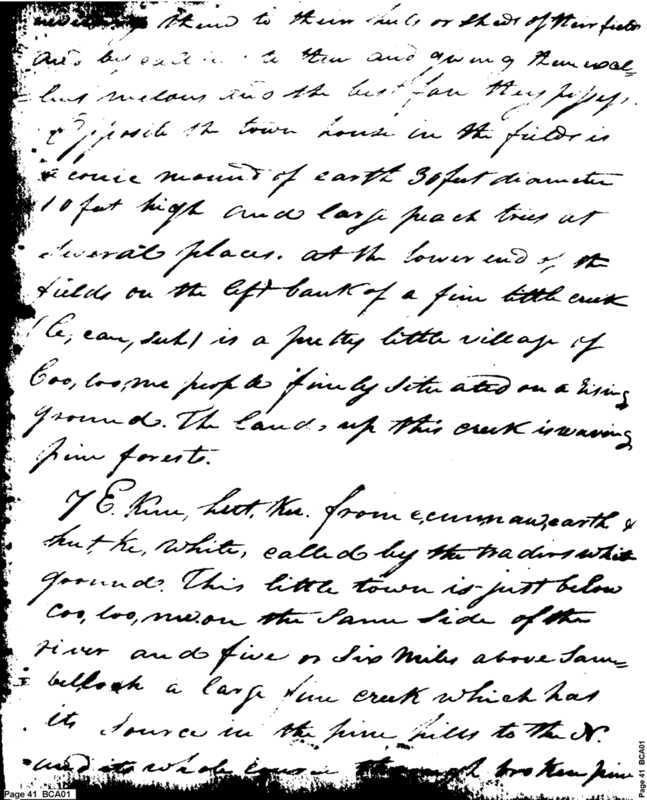 them to their huts or sheds of their fields
and by to them and giving them excel=
=lent melons and the best fare they possess.
Opposite the town house in the fields is
a conic mound of earth 30 feet diameter
10 feet high and large peach trees at
several places. at the lower end of the
fields on the left bank of a fine little creek
(le, cau, suh) is a pretty little village of
Coo, loo, me people finely situated on a rising
ground. The lands up this creek is waving
pine forest.
7 E. kun, hut, kee. from e, cun, nau, earth &
hut ke, white, called by the traders white
ground. This little town is just below
Coo, loo, me on the same side of the
river and five or six miles above Sam=
=belloh a large fine creek which has
its source in the pine hills to the N.
and its whole course through broken pine
Page 41 BCA01
Page 41 BCA01